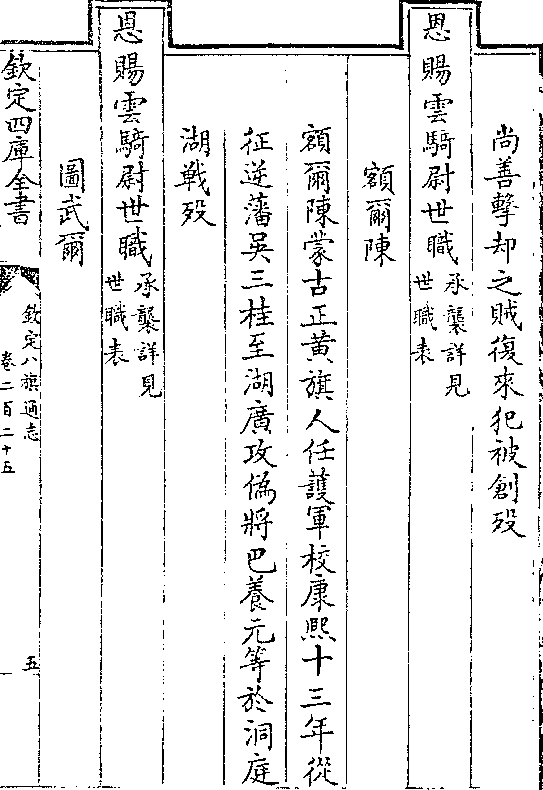 尚善擊却之賊復來犯被創歿
恩賜雲騎尉世職承襲詳見
世職表
額爾陳
額爾陳蒙古正黄旗人任護軍校康熙十三年從
征逆藩吳三桂至湖廣攻偽將巴養元等於洞庭
湖戰歿
恩賜雲騎尉世職承襲詳見
世職表
圖武爾
欽定四庫全書
欽定八旗通志
卷二百二十五
五